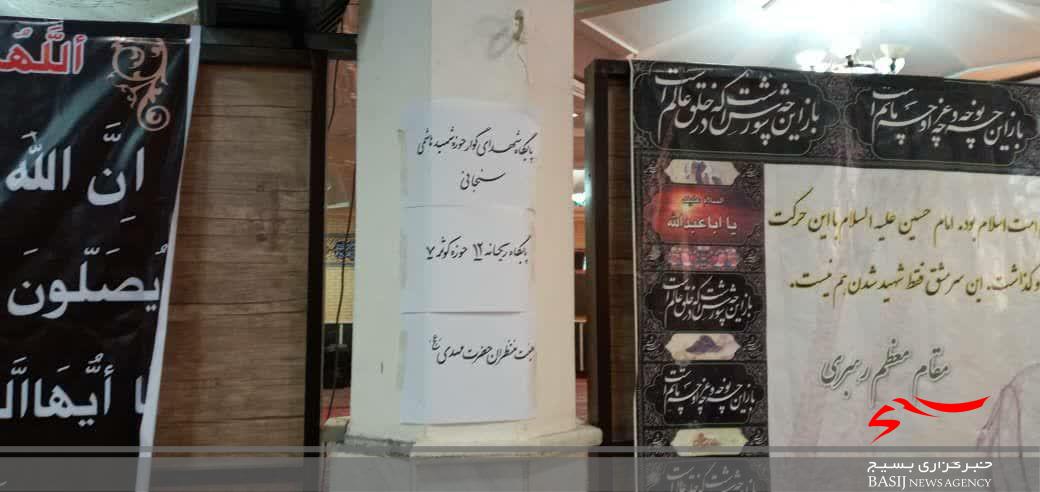 باز این چه شورش است که در خلق عالم است
باز این چه نوحه و چه عزا و چه ماتم است
امت اسلام بود. امام حسین علیه السلام با این حرکت
گذاشت. این سرمشق فقط شهید شدن هم نیست.
مقام معظم رهبری
السلام علیک
یا اباعبدالله
باز این چه شورش است که در خلق عالم است
باز این چه نوحه و چه عزا و چه ماتم است
پایگاه شهدای گوار حوزه شهید هاشمی
سنجانی
پایگاه ریحانه ۱۲ حوزه کوثر ۷
هیئت منتظران حضرت مهدی (عج)
اَللّهُ
اِنَّ اللهَ
یُصَلّونَ
یا أیُّهَا الَّ
خبرگزاری بسیج
BASIJ NEWS AGENCY